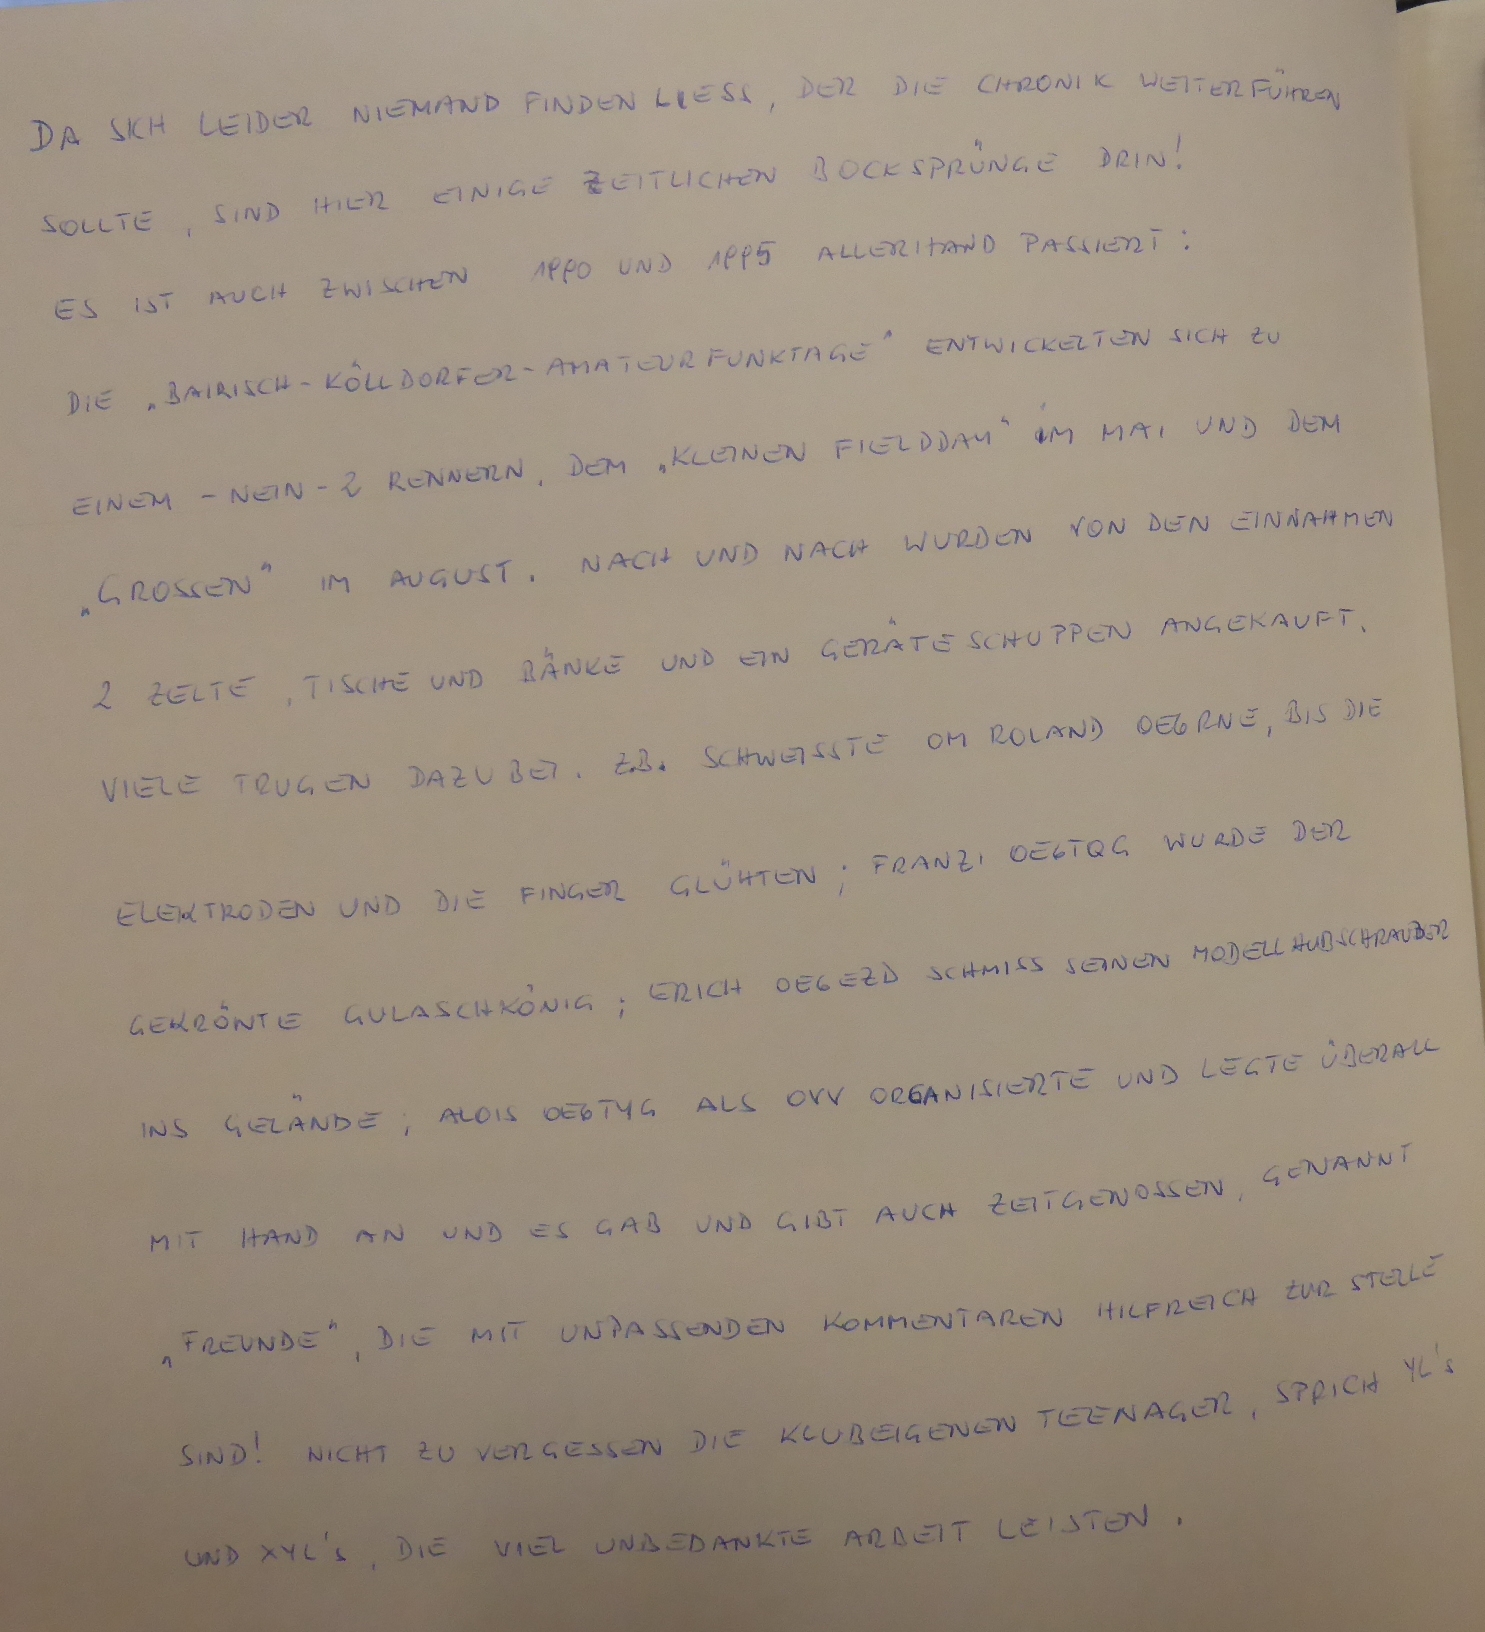 DA SICH LEIDER NIEMAND FINDEN LIESS, DER DIE CHRONIK WEITERFÜHREN
SOLLTE, SIND HIER EINIGE ZEITLICHEN BOCKSPRÜNGE DRIN!
ES IST AUCH ZWISCHEN 1990 UND 1995 ALLERHAND PASSIERT:
DIE „BAIRISCH-KÖLLDORFER-AMATEURFUNKTAGE" ENTWICKELTEN SICH ZU
EINEM -NEIN- 2 RENNERN, DEM „KLEINEN FIELDDAY" IM MAI UND DEM
„GROSSEN" IM AUGUST. NACH UND NACH WURDEN VON DEN EINNAHMEN
2 ZELTE, TISCHE UND BÄNKE UND EIN GERÄTESCHUPPEN ANGEKAUFT.
VIELE TRUGEN DAZU BEI. Z.B. SCHWEISSTE OM ROLAND OE6RNE, BIS DIE
ELEKTRODEN UND DIE FINGER GLÜHTEN; FRANZI OE6TQG WURDE DER
GEKRÖNTE GULASCHKÖNIG; ERICH OE6EZD SCHMISS SEINEN MODELLHUBSCHRAUBER
INS GELÄNDE; ALOIS OE6TYG ALS OVV ORGANISIERTE UND LEGTE ÜBERALL
MIT HAND AN UND ES GAB UND GIBT AUCH ZEITGENOSSEN, GENANNT
„FREUNDE", DIE MIT UNPASSENDEN KOMMENTAREN HILFREICH ZUR STELLE
SIND! NICHT ZU VERGESSEN DIE KLUBEIGENEN TEENAGER, SPRICH YL's
UND XYL's, DIE VIEL UNBEDANKTE ARBEIT LEISTEN.